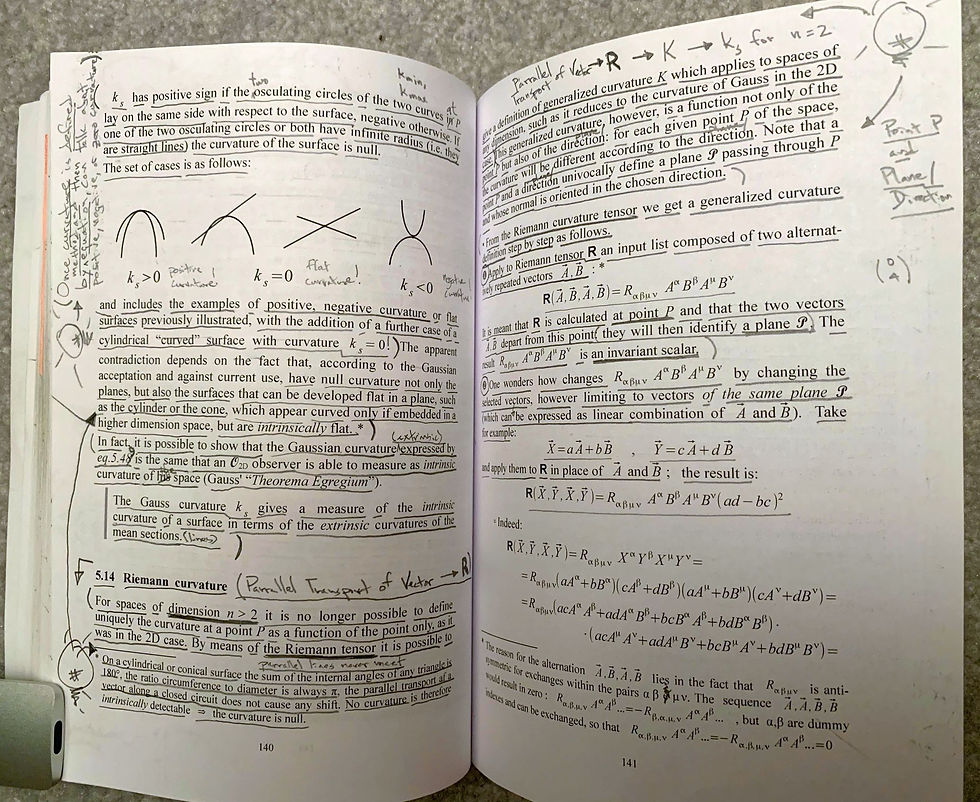 two
Kmin,
Kmax
at P
k_s has positive sign if the osculating circles of the two curves
lay on the same side with respect to the surface, negative otherwise. If
one of the two osculating circles or both have infinite radius (i.e. they
are straight lines) the curvature of the surface is null.
The set of cases is as follows:
k_s>0 positive curvature!
k_s=0 flat curvature!
k_s<0 negative curvature!
and includes the examples of positive, negative curvature or flat
surfaces previously illustrated, with the addition of a further case of a
cylindrical “curved” surface with curvature k_s=0! ) The apparent
contradiction depends on the fact that, according to the Gaussian
acceptation and against current use, have null curvature not only the
planes, but also the surfaces that can be developed flat in a plane, such
as the cylinder or the cone, which appear curved only if embedded in a
higher dimension space, but are intrinsically flat. * )
(extrinsic)
( In fact, it is possible to show that the Gaussian curvature expressed by
eq.5.48 is the same that an O_2D observer is able to measure as intrinsic
curvature of his space (Gauss' “Theorema Egregium”).
The Gauss curvature k_s gives a measure of the intrinsic
curvature of a surface in terms of the extrinsic curvatures of the
mean sections. (linear)
)
5.14 Riemann curvature (Parrallel Transport of Vector → R)
(For spaces of dimension n > 2 it is no longer possible to define
uniquely the curvature at a point P as a function of the point only, as it
was in the 2D case. By means of the Riemann tensor it is possible to
parrallel lines never meet
* On a cylindrical or conical surface the sum of the internal angles of any triangle is
180°, the ratio circumference to diameter is always π, the parallel transport of a
vector along a closed circuit does not cause any shift. No curvature is therefore
intrinsically detectable ⇒ the curvature is null.
140
Parrallel Transport of Vector → R → K → k_s for n=2
*
give a definition of generalized curvature K which applies to spaces of
any dimension, such as it reduces to the curvature of Gauss in the 2D
case. ) This generalized curvature, however, is a function not only of the
point P but also of the direction: for each given point P of the space,
the curvature will be different according to the direction. Note that a
point P and a direction univocally define a plane 𝒫 passing through P
and whose normal is oriented in the chosen direction. )
Point P
and
Plane/
Direction
▫ From the Riemann curvature tensor we get a generalized curvature
definition step by step as follows.
❶ Apply to Riemann tensor R an input list composed of two alternat-
ively repeated vectors A⃗, B⃗ : *
(0 4)
R(A⃗,B⃗,A⃗,B⃗)=R_αβμν A^α B^β A^μ B^ν
It is meant that R is calculated at point P and that the two vectors
A⃗, B⃗ depart from this point( they will then identify a plane 𝒫. The
result R_αβμν A^α B^β A^μ B^ν is an invariant scalar. )
❷ One wonders how changes R_αβμν A^α B^β A^μ B^ν by changing the
selected vectors, however limiting to vectors of the same plane 𝒫
(which can be expressed as linear combination of A⃗ and B⃗). Take
for example:
X⃗=aA⃗+bB⃗ , Y⃗=cA⃗+dB⃗
and apply them to R in place of A⃗ and B⃗ ; the result is:
R(X⃗,Y⃗,X⃗,Y⃗)=R_αβμν A^α B^β A^μ B^ν (ad−bc)²
▫ Indeed:
R(X⃗,Y⃗,X⃗,Y⃗)=R_αβμν X^α Y^β X^μ Y^ν =
=R_αβμν(aA^α+bB^α)(cA^β+dB^β)(aA^μ+bB^μ)(cA^ν+dB^ν)=
=R_αβμν(acA^α A^β+adA^α B^β+bcB^α A^β+bdB^α B^β)·
·(acA^μ A^ν+adA^μ B^ν+bcB^μ A^ν+bdB^μ B^ν)=
* The reason for the alternation A⃗,B⃗,A⃗,B⃗ lies in the fact that R_αβμν is anti-
symmetric for exchanges within the pairs αβ μν. The sequence A⃗,A⃗,B⃗,B⃗
would result in zero : R_α,β,μ,ν A^α A^β...=−R_β,α,μ,ν A^α A^β... , but α,β are dummy
indexes and can be exchanged, so that R_α,β,μ,ν A^α A^β...=−R_α,β,μ,ν A^α A^β...=0
141